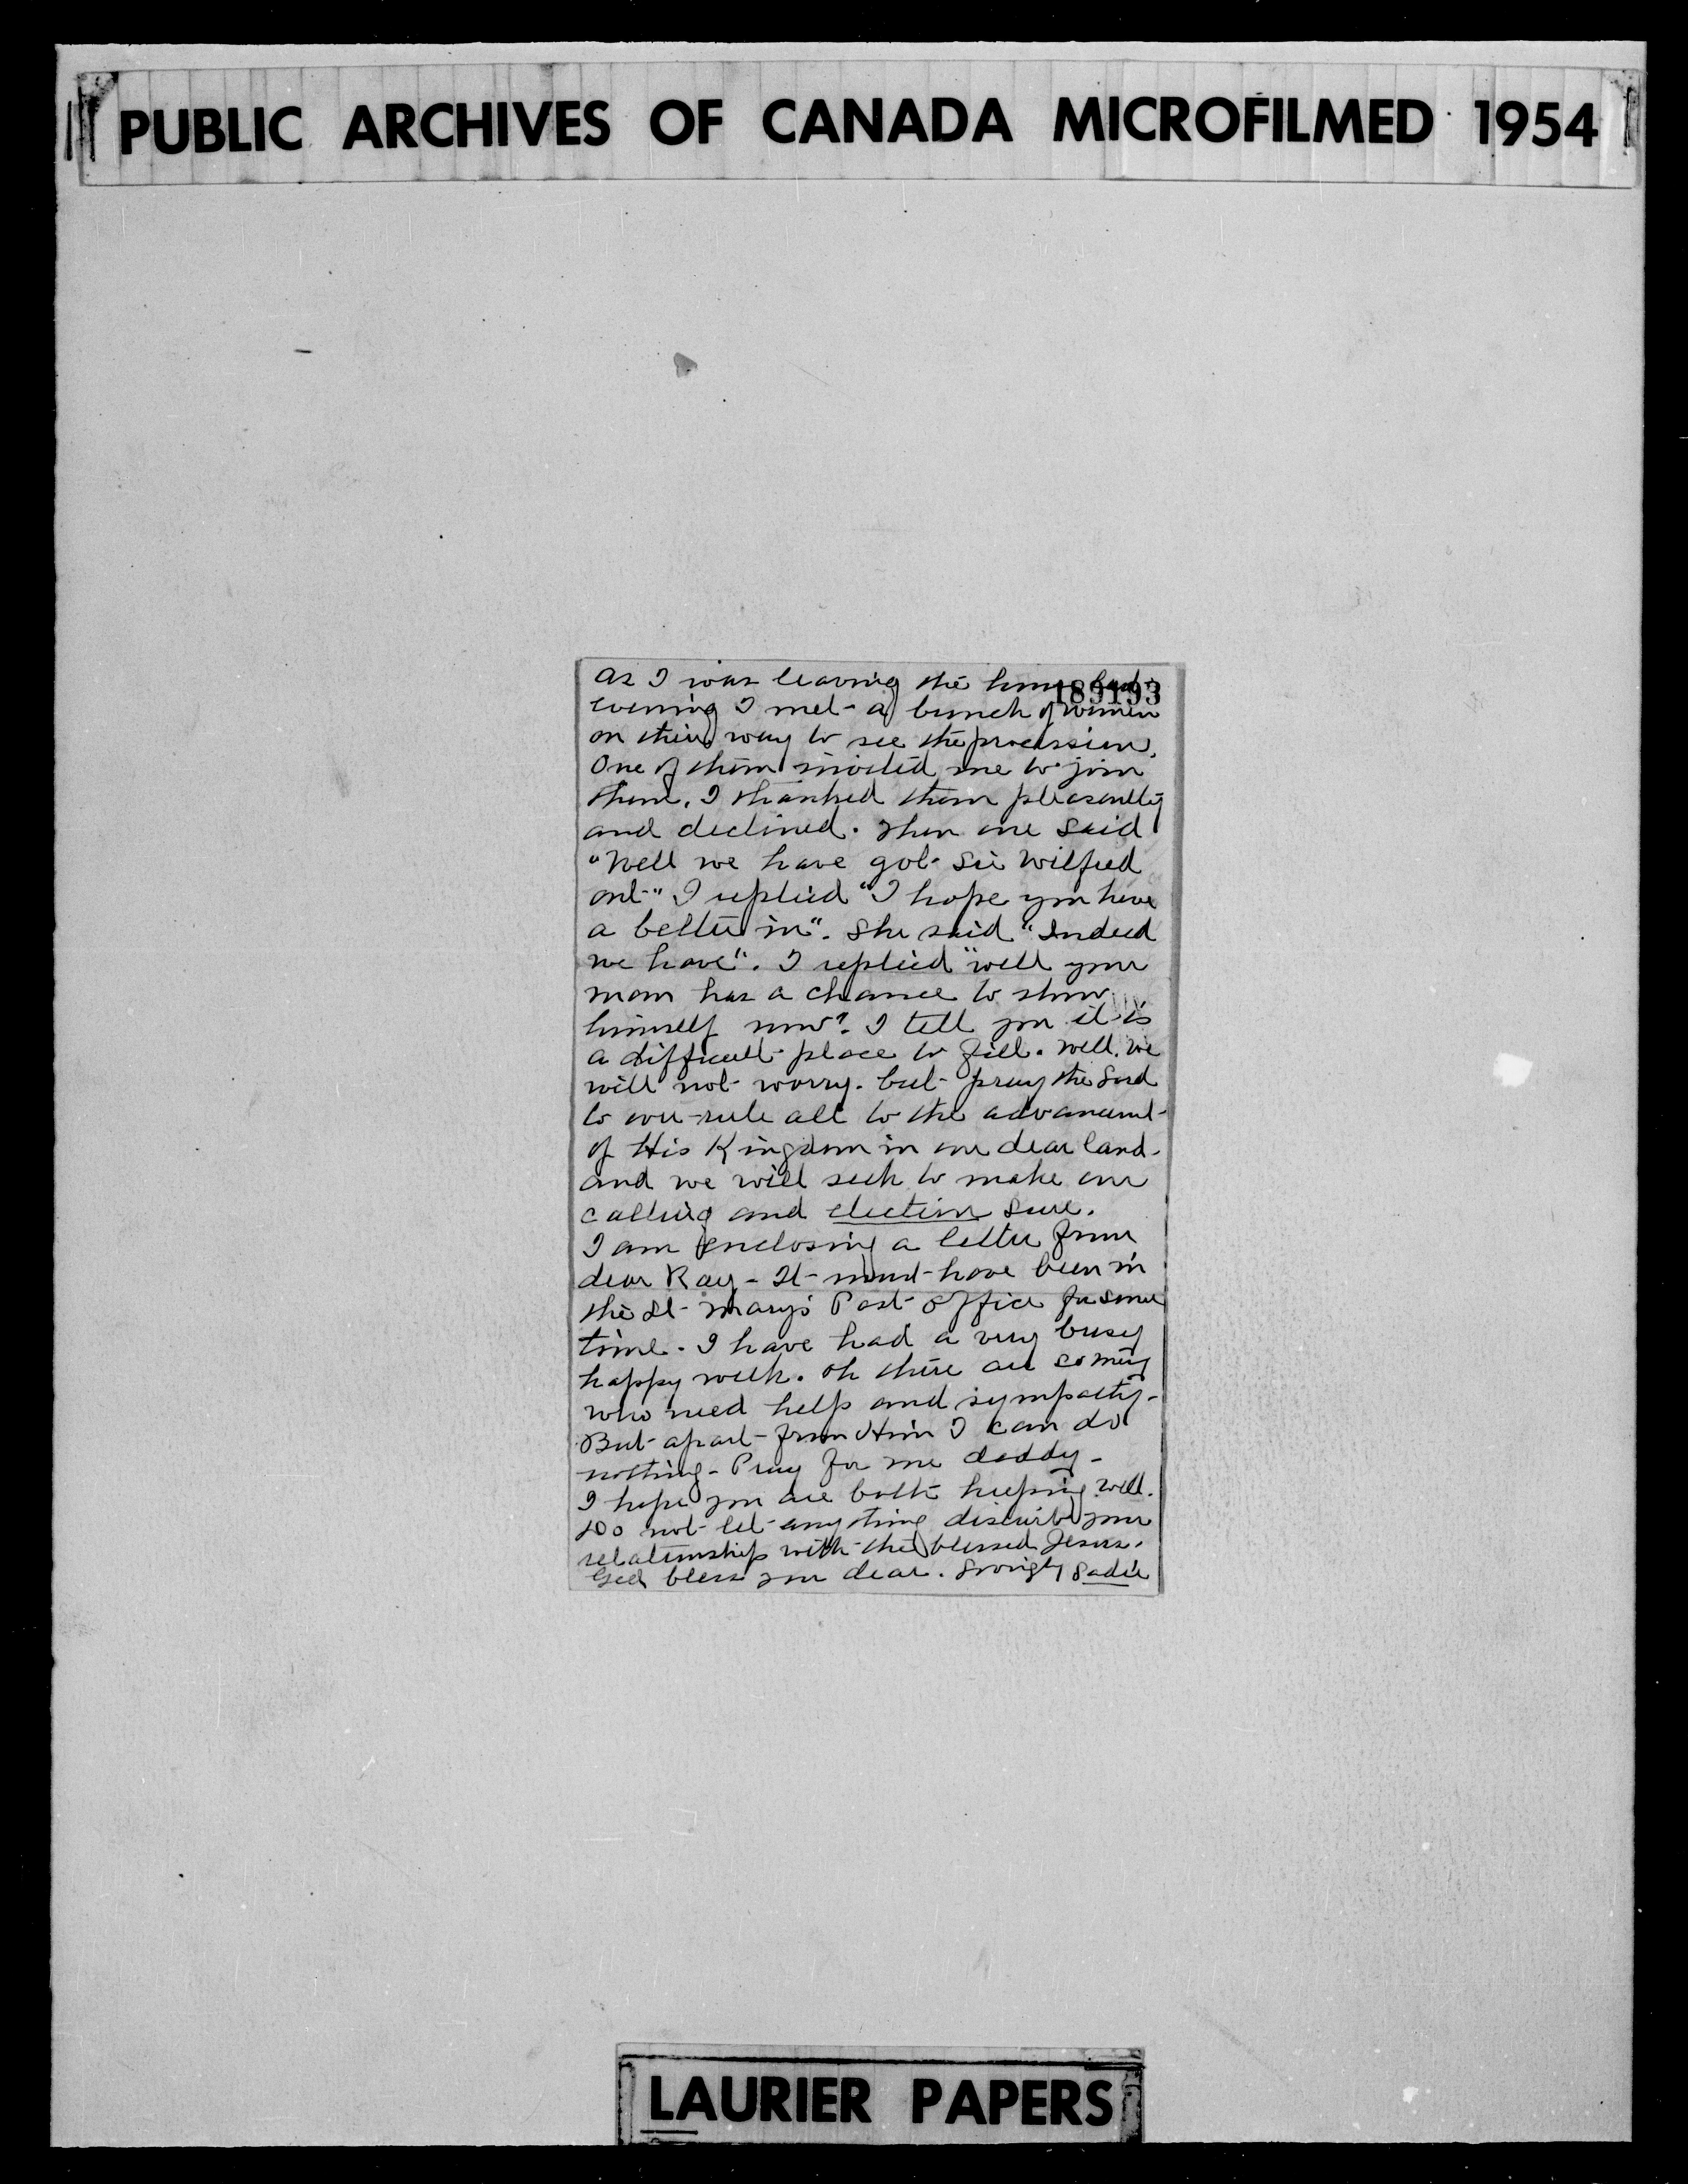 PUBLIC ARCHIVES OF CANADA MICROFILMED 1954
189193
As I was leaving the home last
evening I met a bunch of women
on their way to see the procession.
One of them invited me to join
them. I thanked them pleasantly
and declined. Then one said
"Well we have got Sir Wilfred
out" I replied "I hope you have
a better in". She said "Indeed
we have". I replied "well your
man has a chance to show
himself now". I tell you it is
a difficult place to fill. Well, we
will not worry. but pray the Lord
to over-rule all to the advancement
of His Kingdom in our dear land.
and we will seek to make our
calling and election sure.
I am enclosing a letter from
dear Ray - It must have been in
the St. Mary's Post Office for some
time. I have had a very busy
happy week. Oh there are so many
who need help and sympathy.
But apart from Him I can do
nothing - Pray for me daddy -
I hope you are both keeping well.
Do not let anything disturb your
relationship with the blessed Jesus.
God bless you dear. Lovingly Sadie
LAURIER PAPERS